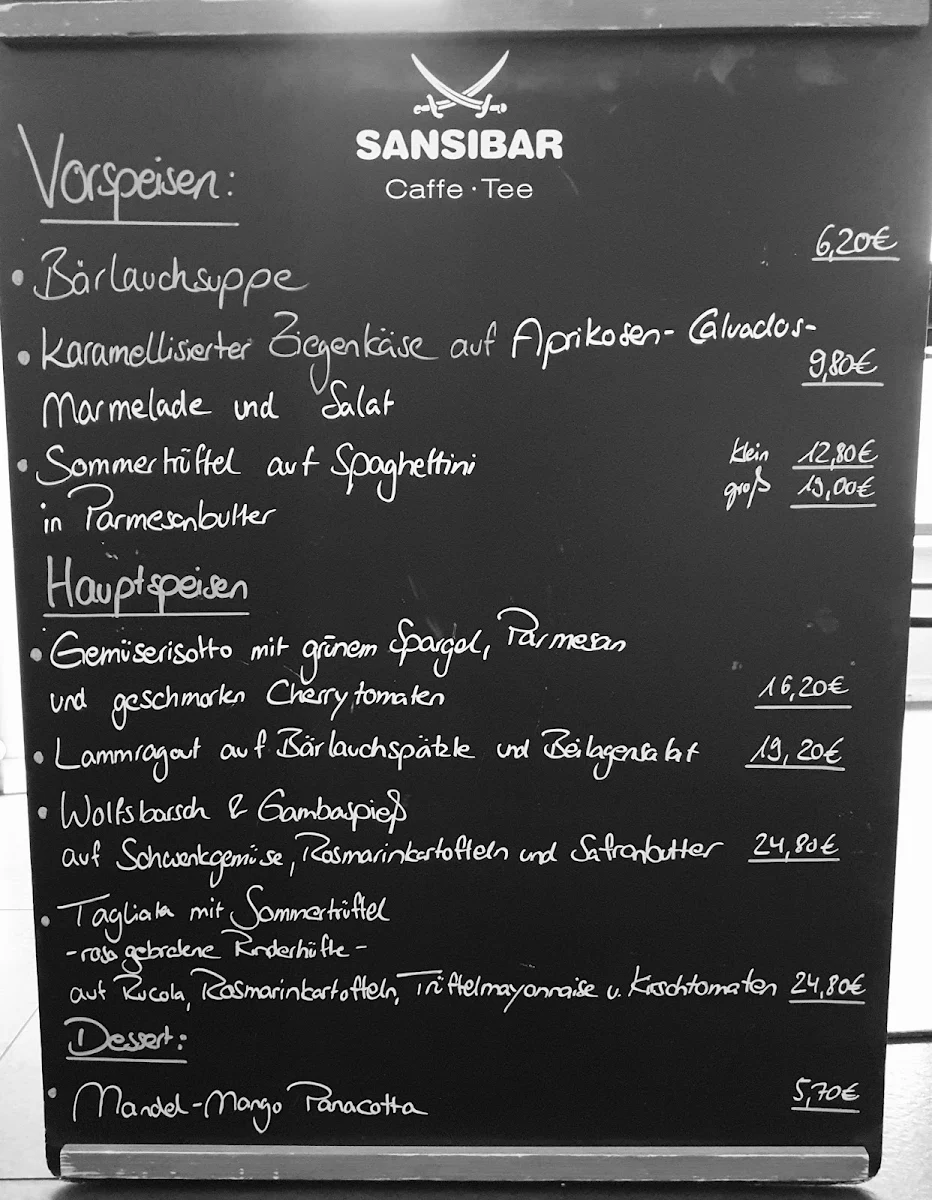 SANSIBAR
Caffe · Tee
Vorspeisen:
• Bärlauchsuppe 6,20€
• Karamellisierter Ziegenkäse auf Aprikosen-Calvados-
Marmelade und Salat 9,80€
• Sommertrüffel auf Spaghettini klein 12,80€
in Parmesanbutter groß 19,00€
Hauptspeisen
• Gemüserisotto mit grünem Spargel, Parmesan
und geschmorten Cherrytomaten 16,20€
• Lammragout auf Bärlauchspätzle und Beilagensalat 19,20€
• Wolfsbarsch & Gambaspieß
auf Schwenkgemüse, Rosmarinkartoffeln und Safranbutter 24,80€
• Tagliata mit Sommertrüffel
- rosa gebratene Rinderhüfte -
auf Rucola, Rosmarinkartoffeln, Trüffelmayonnaise u. Kirschtomaten 24,80€
Dessert:
• Mandel-Mango Panacotta 5,70€